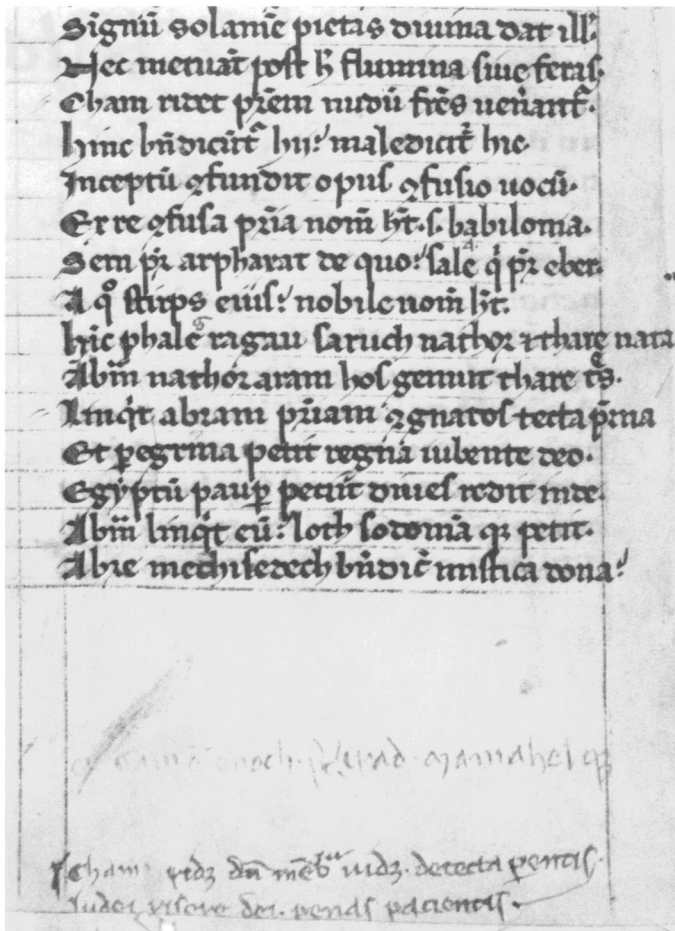 Signū solam̄e pietas diuina dat ill'
Nec metuāt post h̄ flumina siue feras.
Cham ridet p̄rem nudū fr̄es uen̄ant᷑.
hinc bn̄dicūt᷑ hii: maledicit᷑ hic.
Inceptū ꝯfundit opus ꝯfusio uocū.
Ex re ꝯfusa pr̄ia nom̄ h̄t .s. babilonia.
Sem pr̄ arpharat de quo: sale qͥ pr̄ eber.
A qͦ stirps eius: nobile nom̄ h̄t.
hic phale ragau saruch nathor ⁊ thare nata
Abm̄ nathor aram hos genuit thare tͤs.
Linqͥt abram pr̄iam ꝯgnatos tecta pͥma
Et ꝑegrina petit regna iubente deo.
Egyptū pauꝑ peciit diues redit inde.
Abm̄ linqͥt eū: loth sodomā qꝫ petit.
Abre mechisedech bn̄dic̄ mistica dona:
enoch. irad. mamahel qꝫ
Cham ridꝫ dū mēbͣ uidꝫ. detecta parentis.
Iudei risere dei. penas pacientis.